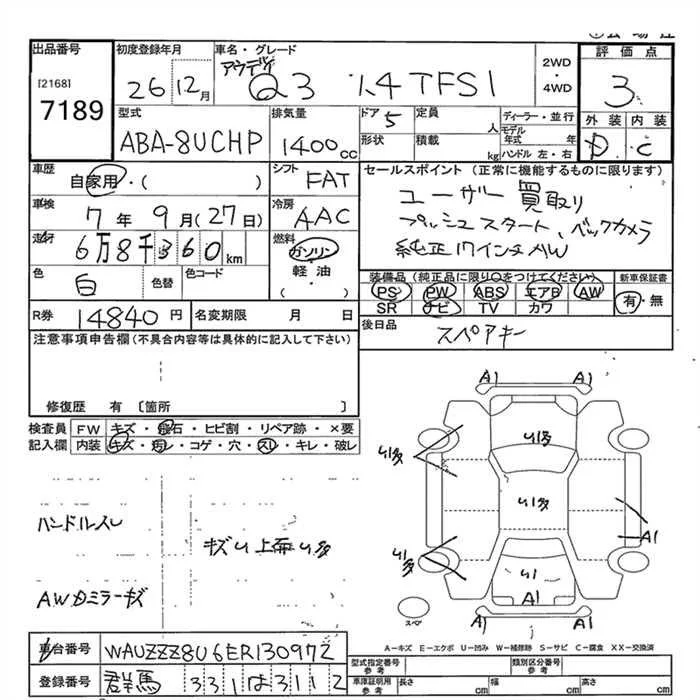 出品番号
[2168]
7189
初度登録年月
26 12月
車名・グレード
アウディ Q3 1.4 TFSI
2WD
・
4WD
評価点
3
外装 内装
D C
型式
ABA-8UCHP
排気量
1400cc
ドア 5
形状
定員 人
積載 kg
ディーラー・並行
モデル年式 年
ハンドル 左・右
車歴
自家用・( )
シフト
FAT
車検
7年9月(27日)
冷房
AAC
走行
6万8千360km
燃料
ガソリン
軽・油
( )
色
白
色替
色コード
R券 14840円
名変期限 月 日
セールスポイント(正常に機能するものに限ります)
ユーザー買取り
プッシュスタート、バックカメラ
純正17インチAW
装備品(純正品に限り○をつけてください)
PS PW ABS エアB AW
SR ナビ TV カワ
新車保証書
有・無
後日品
スペアキー
注意事項申告欄(不具合内容等は具体的に記入して下さい)
修復歴 有 〔箇所 〕
検査員記入欄
FW キズ・飛石・ヒビ割・リペア跡・×要
内装 キズ・汚レ・コゲ・穴・スレ・キレ・破レ
ハンドルスレ
キズU 上面U多
AWカミラーキズ
A1 A1
U1多
U1多
U1多
U1多
U1
A1
A1
A1 A1
スペ
A−キズ E−エクボ U−凹み W−補修跡 S−サビ C−腐食 XX−交換済
車台番号 WAUZZZ8U6ER130972
登録番号 群馬 331 は 3112
型式指定番号 参考
類別区分番号 参考
車庫証明用 参考
長さ cm
幅 cm
高さ cm